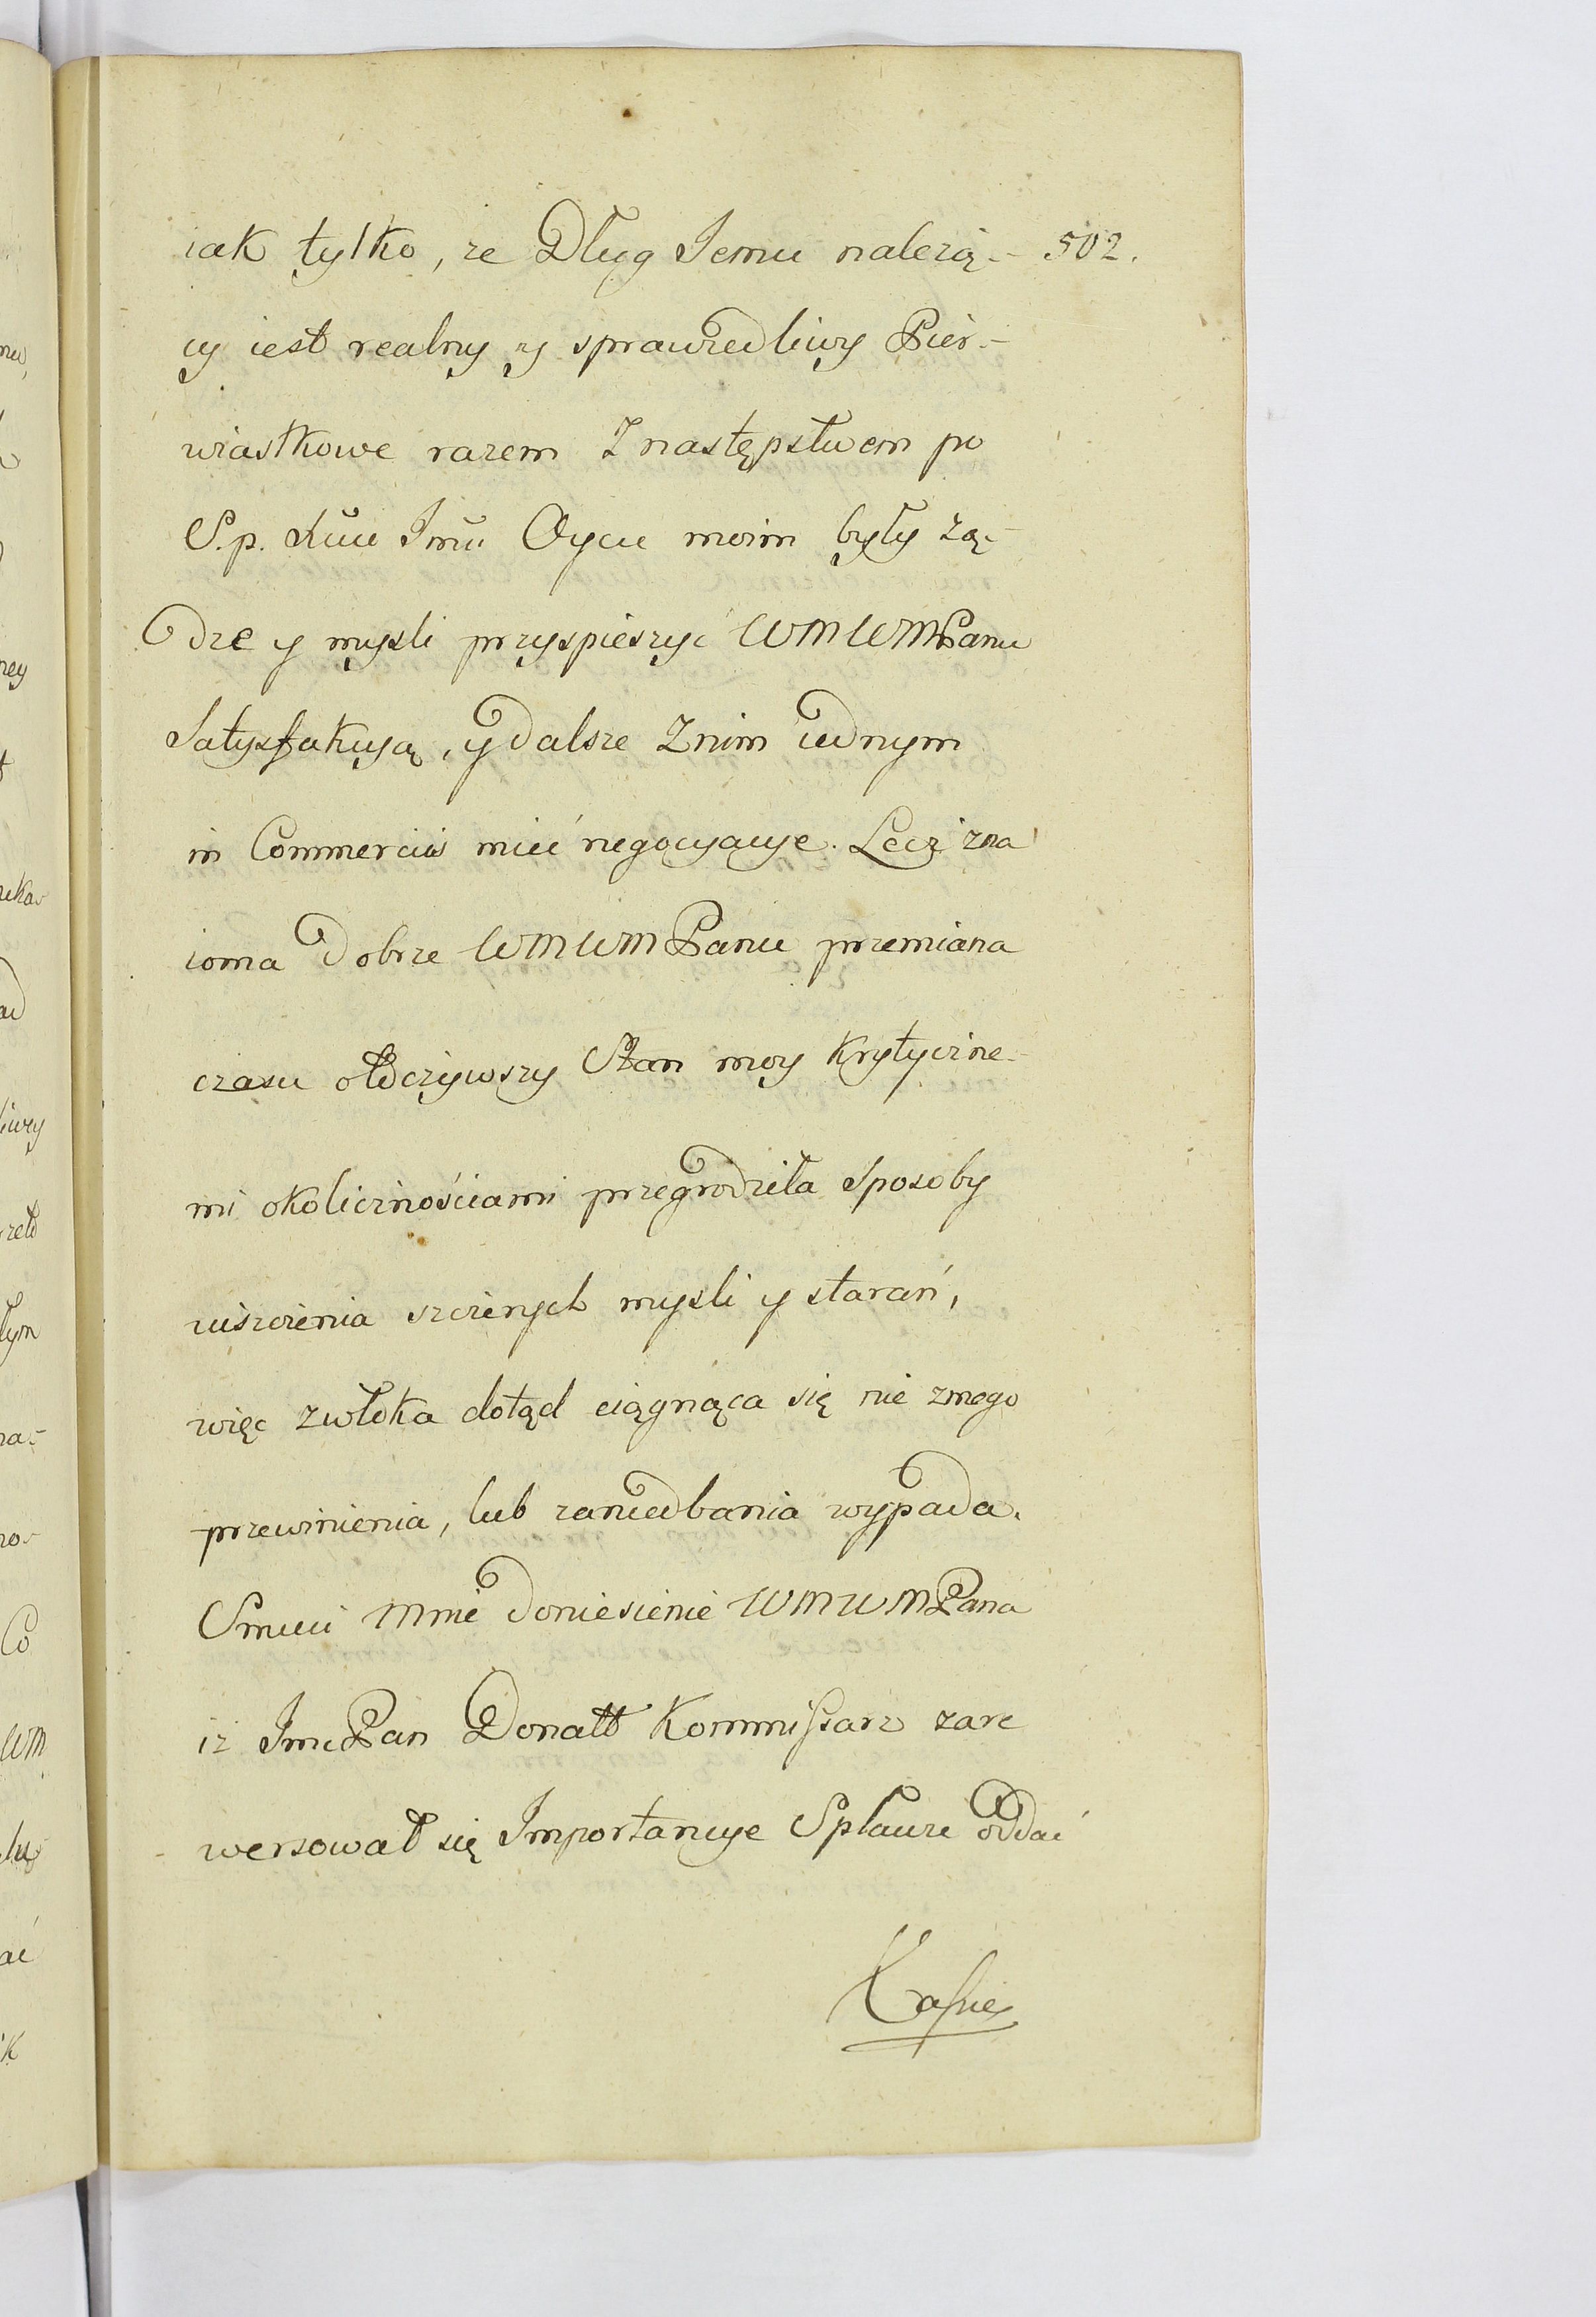 iak tylko, ze Dług Jemu nalezią- 502.
cy iest realny y sprawiedliwy Pier-
wiastkowe razem Z następstwem po
S.p. Jmu Oycu moim były żą-
dze y mysli przyspieszyć WMWMPanu
Satysfakcyą, y dalsze Z nim iednym
in Commercio mieć negocyacye. Lecz zna
ioma dobrze WMWMPanu przemiana
czasu otłoczywszy Stan moy Krytyczne-
mi okolicznościami przegrodziła Sposoby
uiszczenia szczerych mysli y starań,
więc zwłoka dotąd ciągnąca się nie zmego
przewinienia, lub zaniedbania wypada.
Smuci Mnie doniesienie WMWMPana
iż JmcPan Donatt Kommissarz zare
wersował się Importancye Spławu oddać